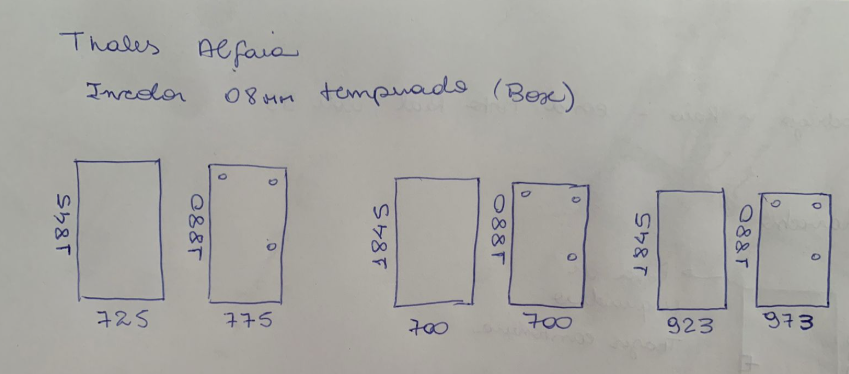 Thales Alfaia
Incolor 08mm temperado (Box)
1845
1880
1845
1880
1845
1880
725
775
700
700
923
973